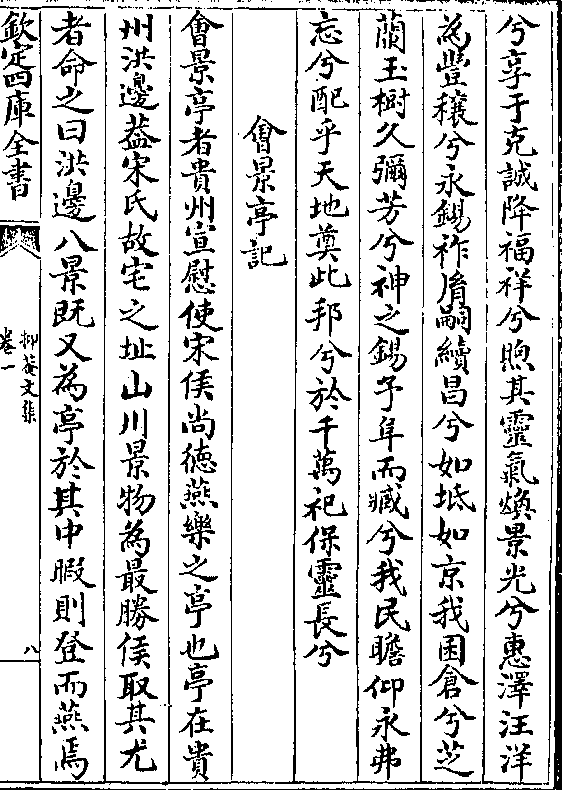 兮享于克誠降福祥兮煦其靈氣煥景光兮惠澤汪洋
為豐穰兮永錫祚脩嗣續昌兮如坻如京我囷倉兮芝
蘭玉樹久彌芳兮神之錫予阜而臧兮我民瞻仰永弗
忘兮配乎天地奠此邦兮於千萬祀保靈長兮
會景亭記
會景亭者貴州宣慰使宋侯尚德燕樂之亭也亭在貴
州洪邊葢宋氏故宅之址山川景物為最勝侯取其尤
者命之曰洪邊八景既又為亭於其中暇則登而燕焉
欽定四庫全書
抑菴文集
卷一
八